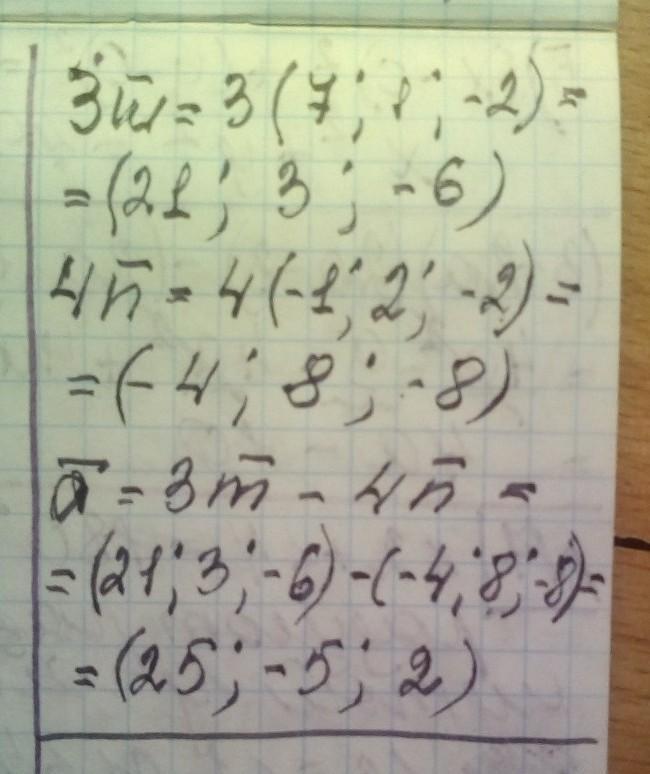 3m̄ = 3(7; 1; -2) =
= (21; 3; -6)
4n̄ = 4(-1; 2; -2) =
= (-4; 8; -8)
ā = 3m̄ - 4n̄ =
= (21; 3; -6) - (-4; 8; -8) =
= (25; -5; 2)